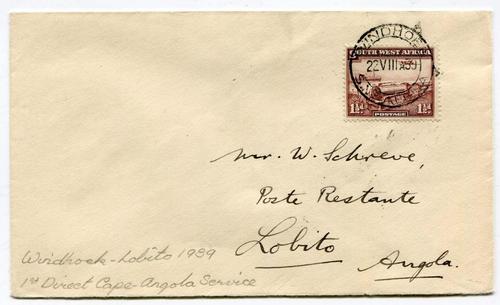 WINDHOEK
SOUTH WEST AFRICA
22 VIII 39
1½ 1½
POSTAGE
Mr. W. Schreve,
Poste Restante
Lobito
Angola.
Windhoek-Lobito 1939
1st Direct Cape-Angola Service